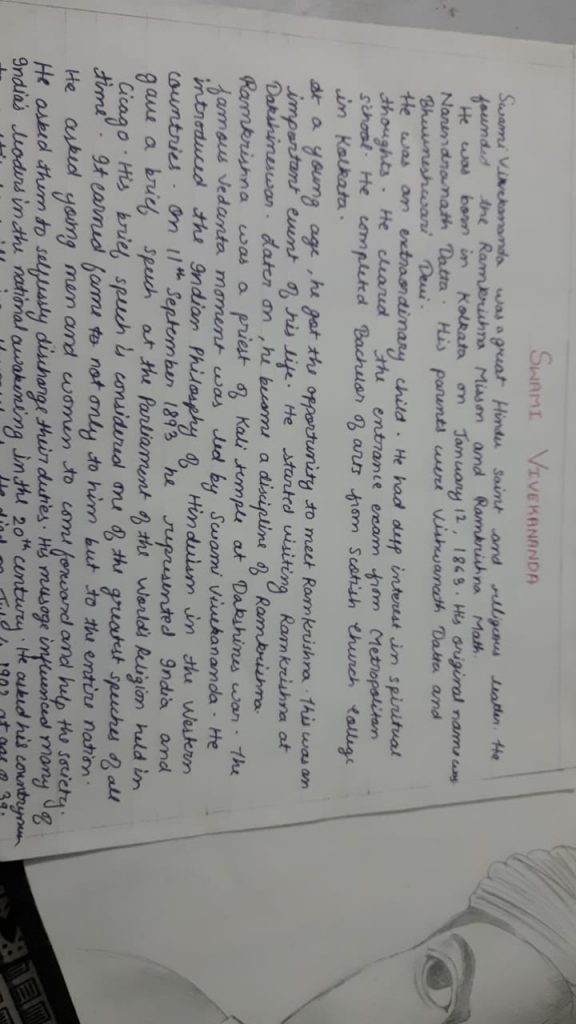 SWAMI VIVEKANANDA
Swami Vivekananda was a great Hindu saint and religious leader. He
founded the Ramkrishna Misson and Ramkrishna Math.
He was born in Kolkata on January 12, 1863. His original name was
Narendranath Datta. His parents were Vishwanath Datta and
Bhuvneshwari Devi.
He was an extraordinary child. He had deep interest in spiritual
thoughts. He cleared the entrance exam from Metropolitan
school. He completed Bachelor of arts from Scotish Church College
in Kolkata.
At a young age, he got the opportunity to meet Ramkrishna. This was an
important event of his life. He started visiting Ramkrishna at
Dakshineswar. Later on, he become a discipline of Ramkrishna.
Ramkrishna was a priest of Kali temple at Dakshines war. The
famous Vedanta moment was led by Swami Vivekananda. He
introduced the Indian Philosophy of Hinduism in the Western
countries. On 11th September 1893 he represented India and
gave a brief speech at the Parliament of the World's Religion held in
Cicago. His brief speech is considered one of the greatest speeches of all
time. It earned fame to not only to him but to the entire nation.
He asked young men and women to come forward and help the society.
He asked them to selflessly discharge their duties. His message influenced many of
India's leaders in the national awakening in the 20th century. He asked his countrymen
He died on July 4, 1902 at age of 39.